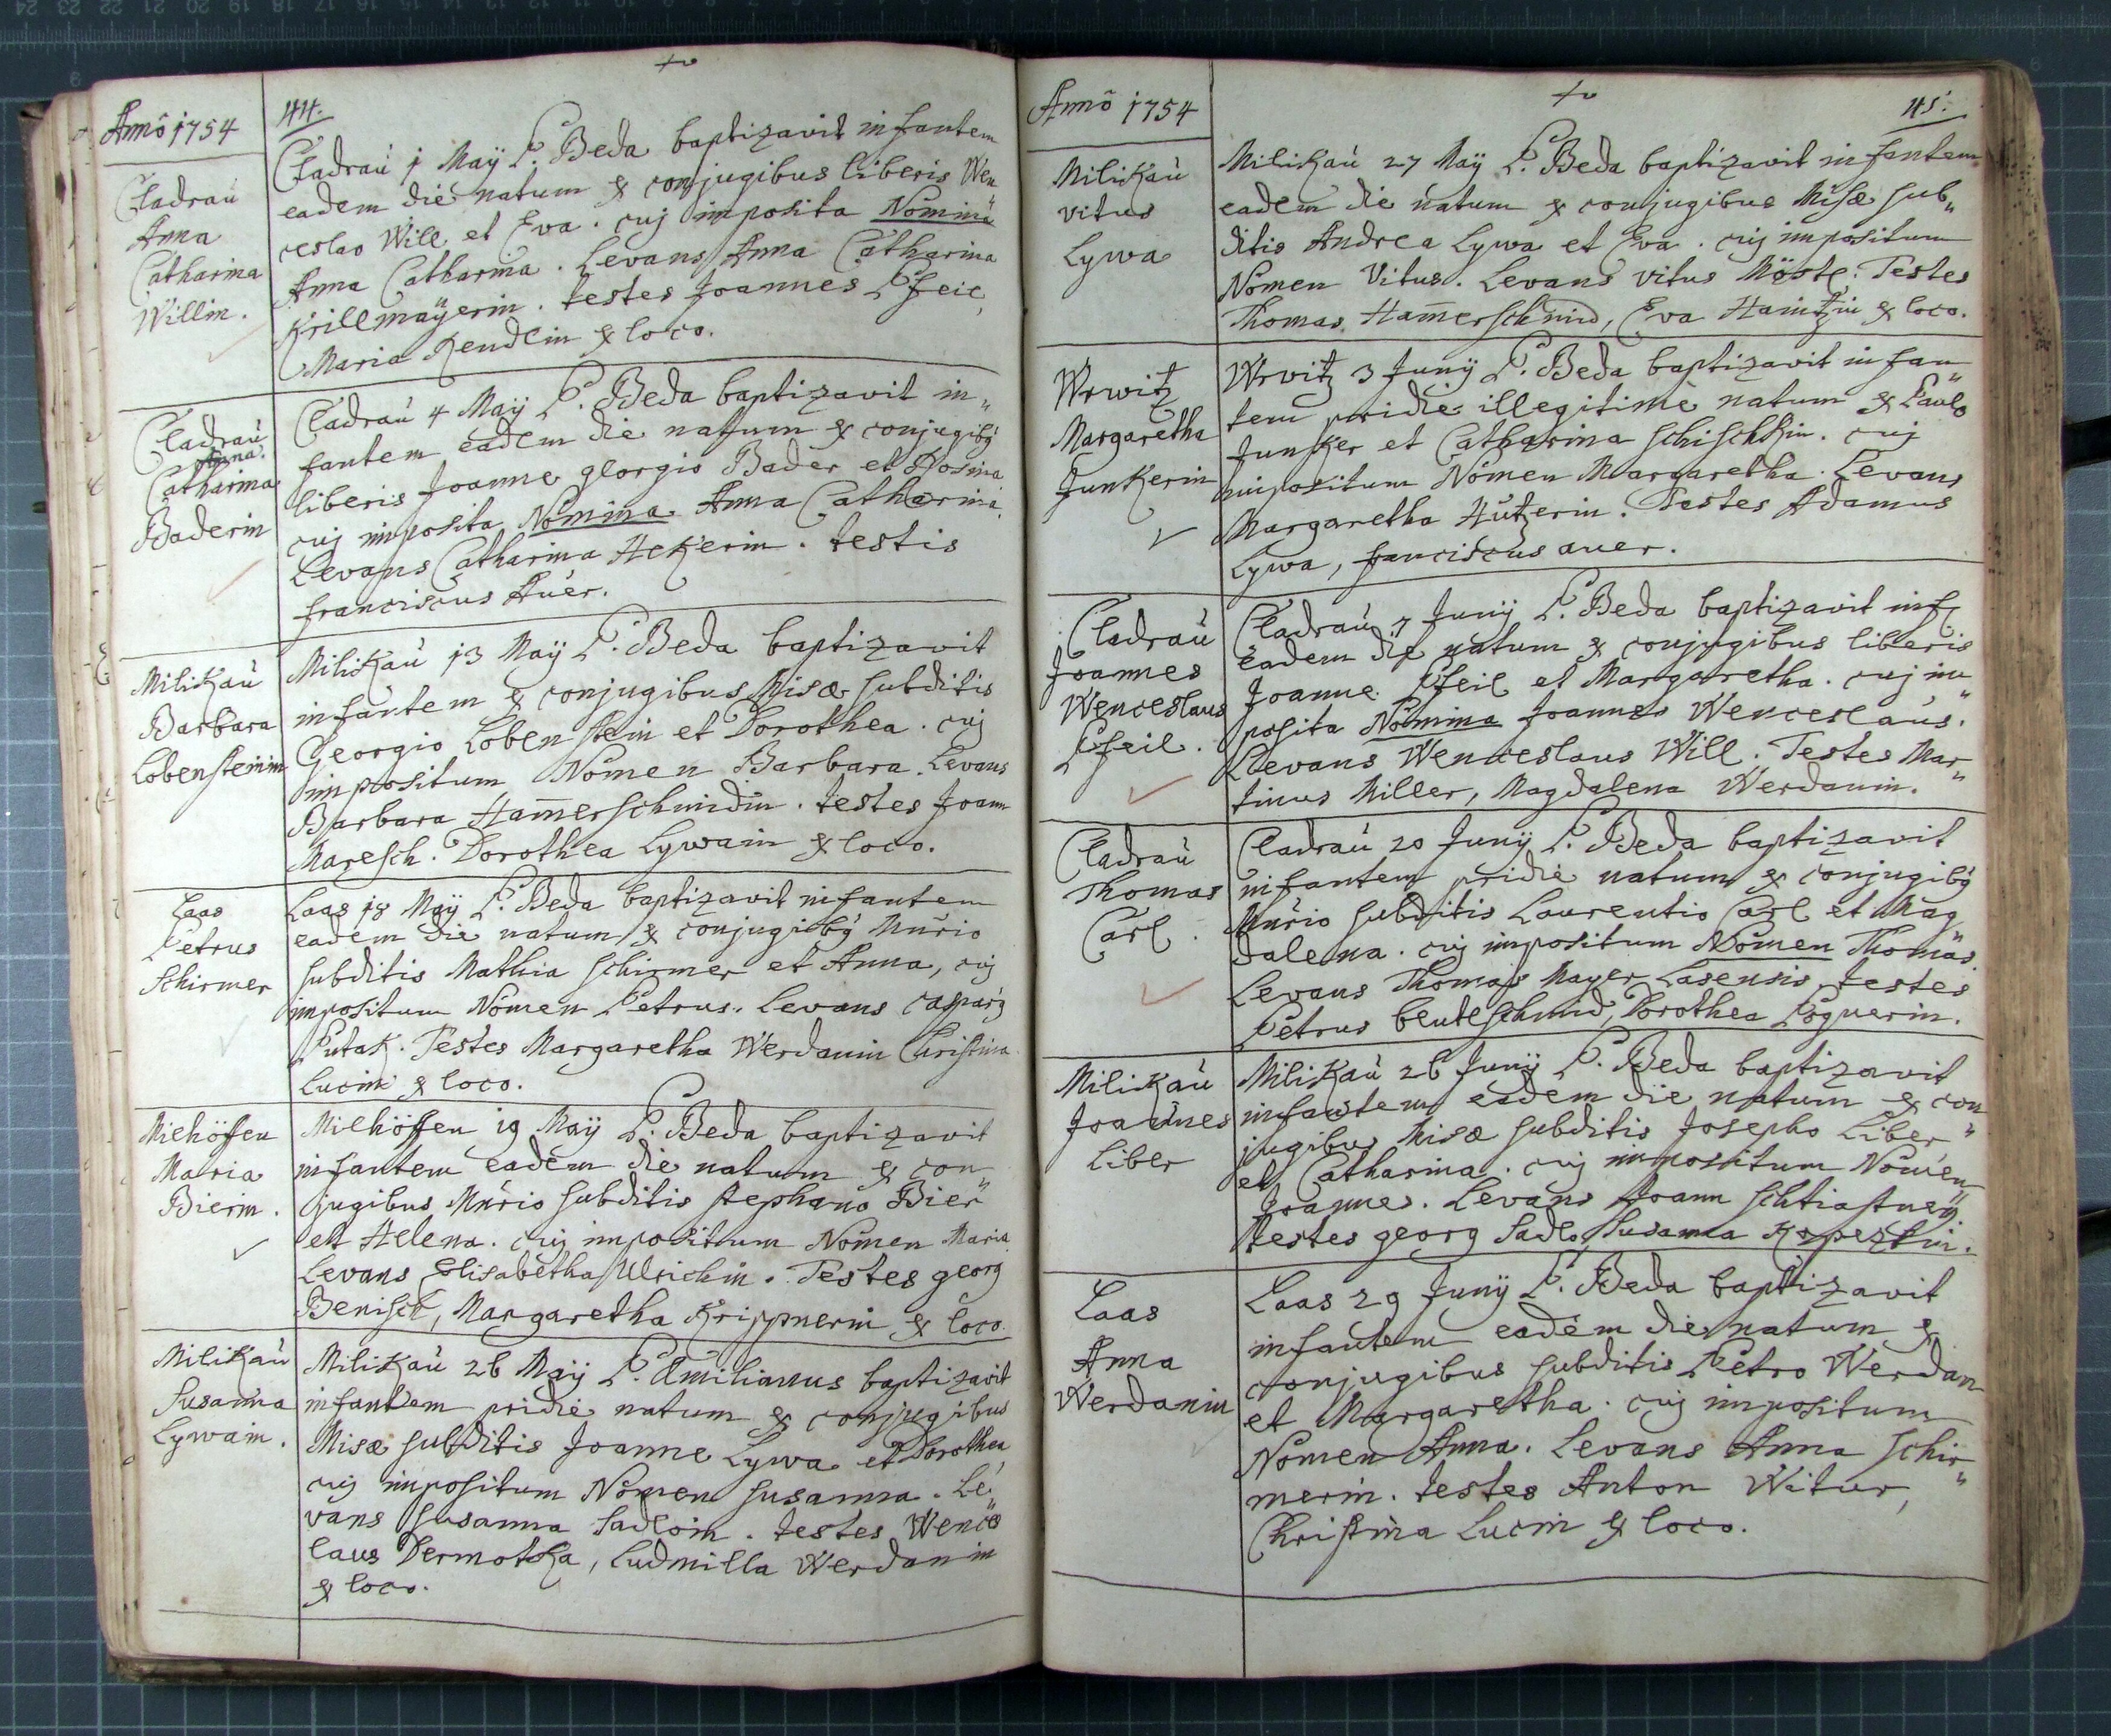 Anno 1754
44.
Cladrau
Anna
Catharina
Willin.
Cladrau 1 Maÿ P. Beda baptizavit infantem
eadem die natum ex conjugibus liberis Wen
ceslao Will et Eva. cuj imposita Nomina
Anna Catharina. Levans Anna Catharina
Krillmaÿerin. testes Joannes Pfeil,
Maria Kendlin ex loco.
Cladrau
Anna
Catharina
Baderin
Cladrau 4 Maÿ P. Beda baptizavit in„
fantem eadem die natum ex conjugibg
liberis Joanne georgio Bader et Rosina.
cuj imposita Nomina Anna Catharina.
Levans Catharina Hekerin. testis
franciscus Auer.
Milikau
Barbara
Lobensteinin
Milikau 13 Maÿ P. Beda baptizavit
infantem ex conjugibus Misæ subditis
Georgio Lobenstein et Dorothea. cuj
impositum Nomen Barbara. Levans
Barbara Ham̅erschmidin. testes Joann
Maresch. Dorothea Lywain ex loco.
Laas
Petrus
Schirmer
Laas 18 Maÿ P. Beda baptizavit infantem
eadem die natum ex conjugibg Murio
subditis Mathia schirmer et Anna, cuj
impositum Nomen Petrus. Levans casparg
Putak. Testes Margaretha Werdanin Christina
Lucin ex loco.
Milhöffen
Maria
Bierin.
Milhöffen 19 Maÿ P. Beda baptizavit
infantem eadem die natum ex con„
jugibus Murio subditis stephano Bier
et Helena. cuj impositum Nomen Maria
Levans Elisabetha Ulrichin. Testes georg
Benisch, Margaretha Krippnerin ex loco.
Milikau
Susanna
Lywain.
Milikau 26 Maÿ P. Æmilianus baptizavit
infantem pridie natum ex conjugibus
Misæ subditis Joanne Lywa et Dorothea
cuj impositum Nomen susanna. Le„
vans susanna sadloin. testes Wences„
laus Dermotka, Ludmilla Werdanin
ex loco.
Anno 1754
45.
Milikau
Vitus
Lywa
Milikau 27 Maÿ P. Beda baptizavit infantem
eadem die natum ex conjugibus Misæ sub„
ditis Andrea Lywa et Eva. cuj impositum
Nomen Vitus. Levans vitus Möstl. Testes
Thomas Ham̅erschmid, Eva Hanitzin ex loco.
Wrwitz
Margaretha
Junkerin
Wrvitz 3 Junÿ P. Beda baptizavit infan„
tem pridie illegitime natum ex Paulo
Junker et Catharina schischkin. cuj
impositum Nomen Margaretha. Levans
Margaretha Hützerin. Testes Adamus
Lywa, franciscus auer.
Cladrau
Joannes
Wenceslaus
Pfeil.
Cladrau 7 Junÿ P. Beda baptizavit inf
eadem die natum ex conjugibus liberis
Joanne Pfeil et Margaretha. cuj im„
posita Nomina Joannes Wenceslaus.
Levans Wenceslaus Will. Testes Mar„
tinus Miller, Magdalena Werdanin.
Cladrau
Thomas
Carl.
Cladrau 20 Junÿ P. Beda baptizavit
infantem pridie natum ex conjugibg
Murio subditis Laurentio Carl et Mag„
dalena. cuj impositum Nomen Thomas.
Levans Thomas Mayer Lasensis, testes
Petrus beutlschmid, Dorothea Pognerin.
Milikau
Joannes
Liber
Milikau 26 Junÿ P. Beda baptizavit
infantem eadem die natum ex con„
jugibus Misæ subditis Josepho Liber
et Catharina. cuj impositum Nomen
Joannes. Levans Joann schtiastneÿ
testes georg sadlo, susanna
Laas
Anna
Werdanin
Laas 29 Junÿ P. Beda baptizavit
infantem eadem die natum ex
conjugibus subditis Petro Werdan
et Margaretha. cuj impositum
Nomen Anna. Levans Anna schir„
merin. testes Anton Witur,
Christina Lucin ex loco.